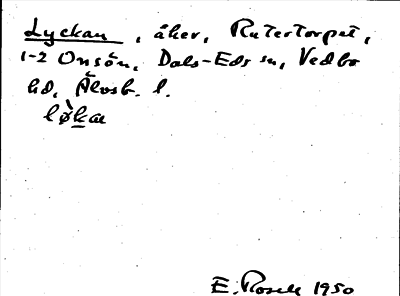 Lyckan, åker, Rutertorpet,
1-2 Onsön, Dals-Eds sn, Vedbo
hd, Älvsb. l.
E. Rosell 1950